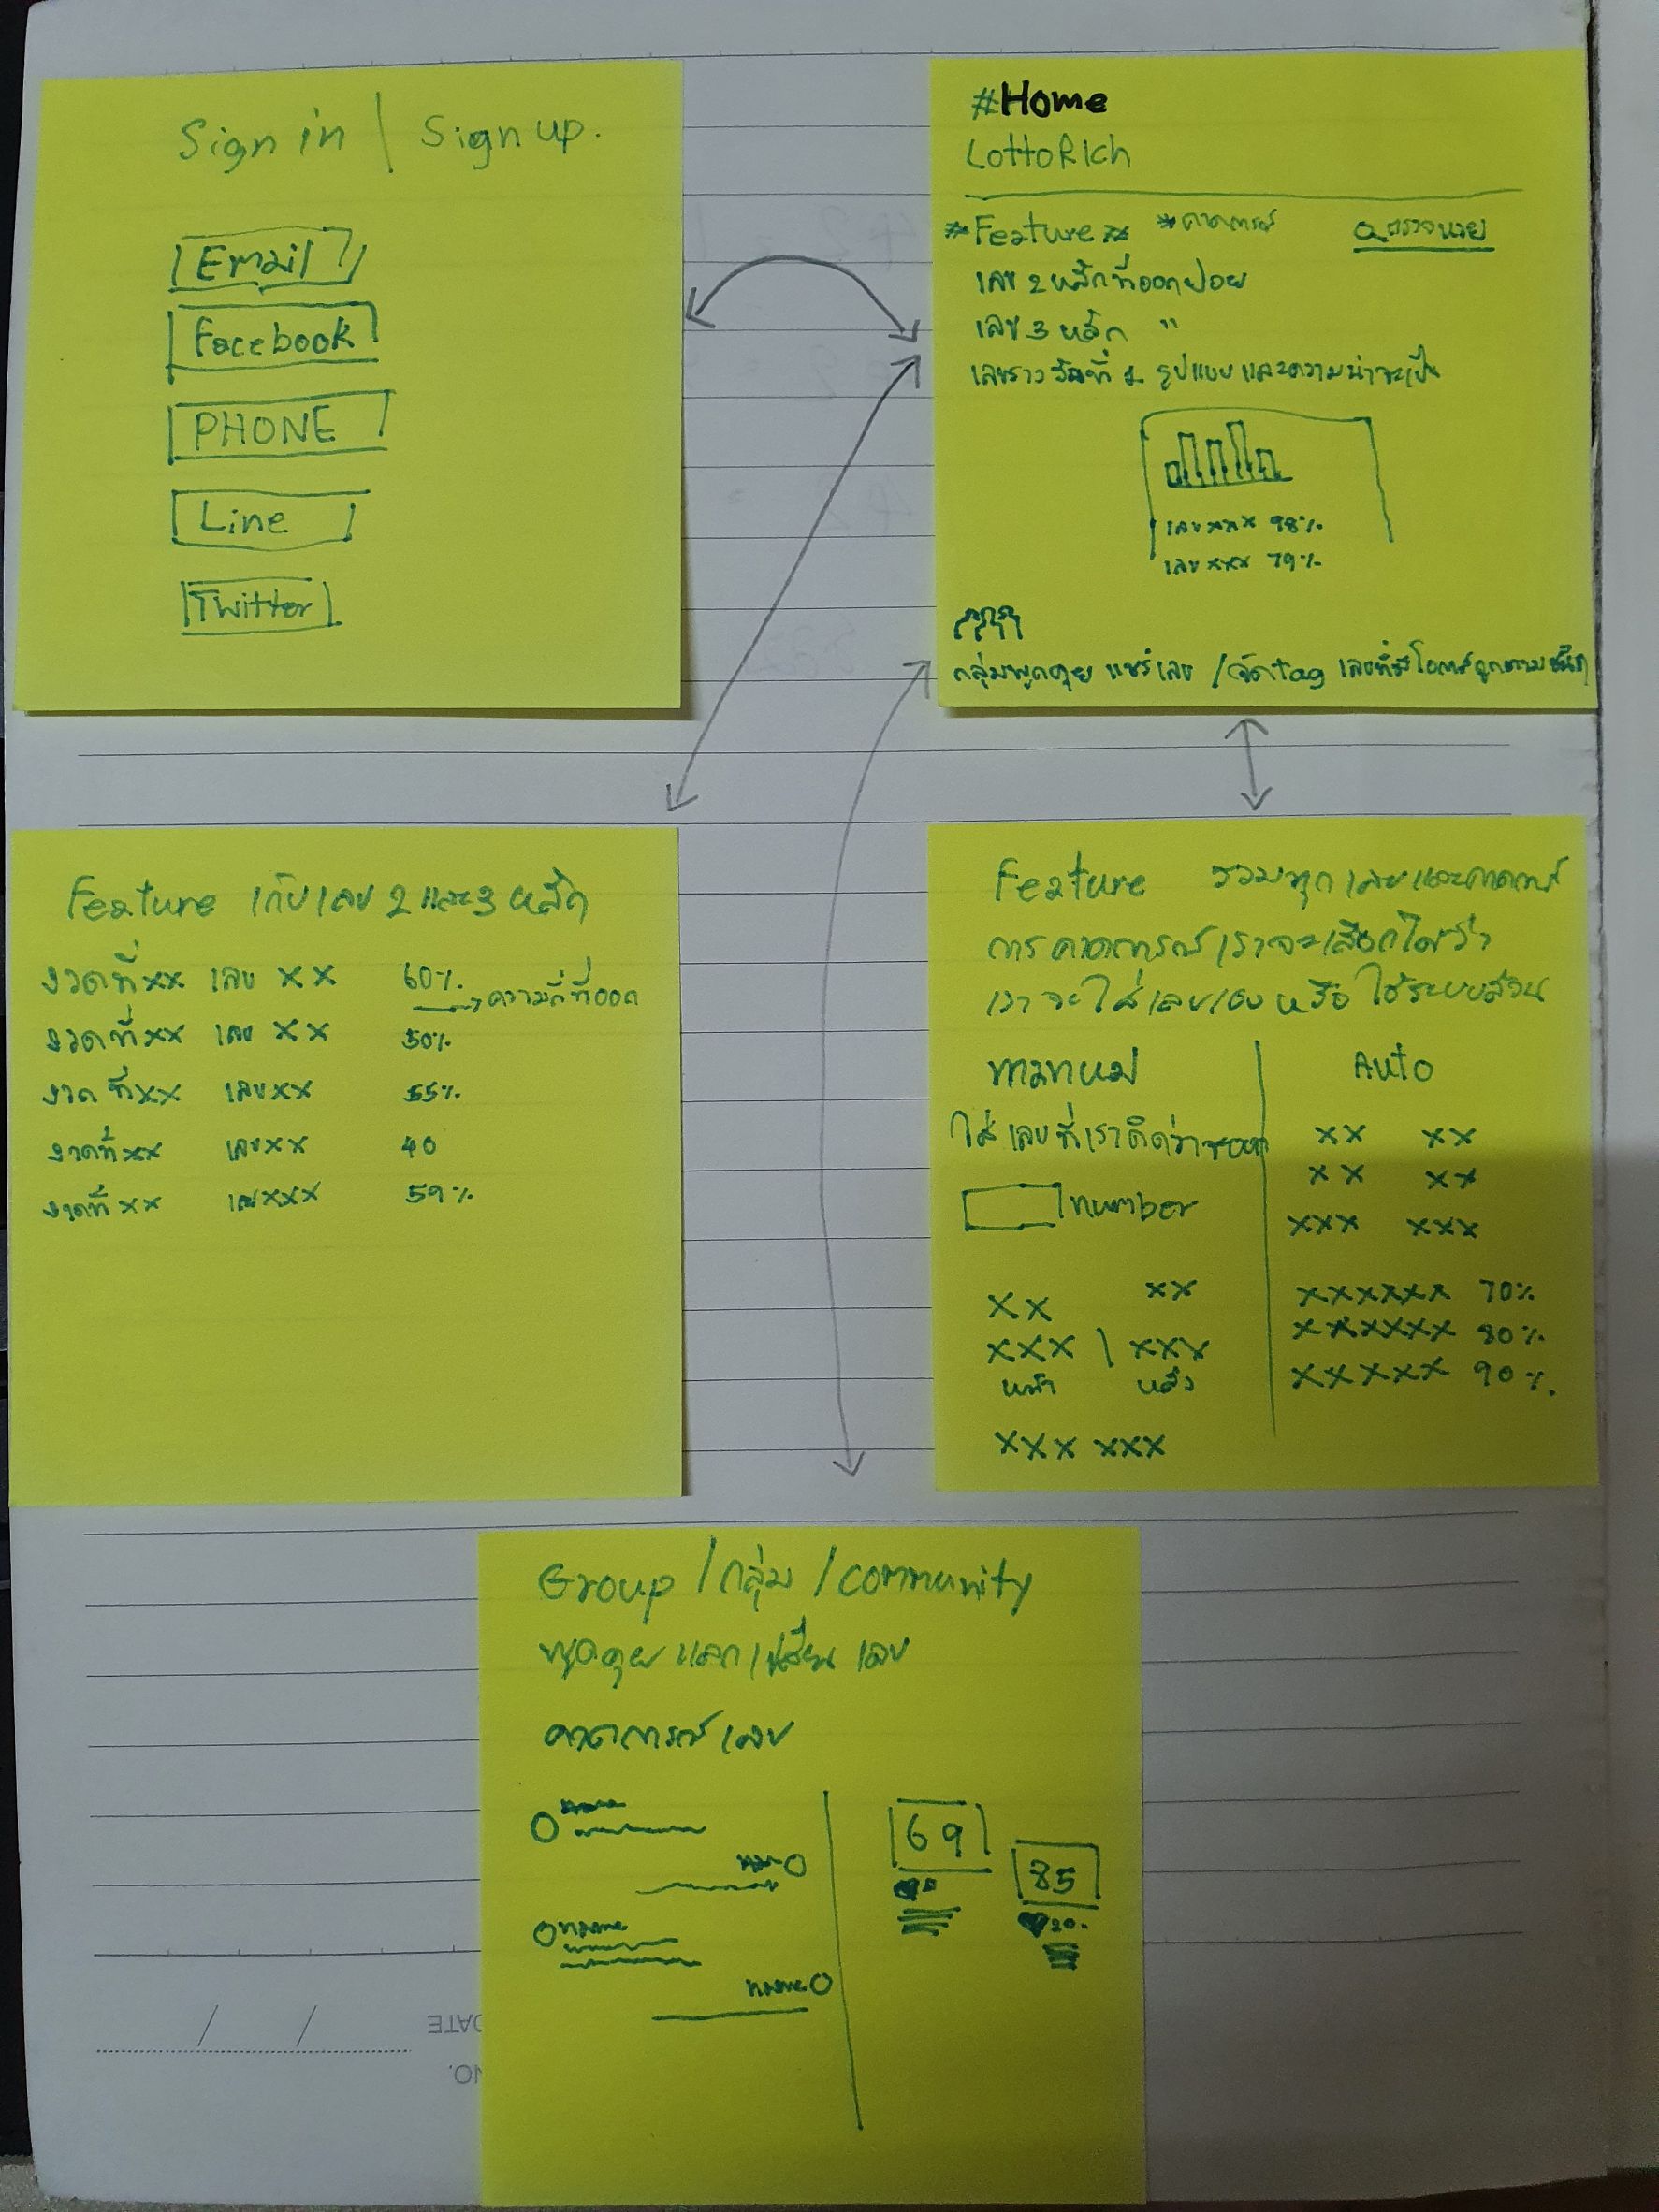 Sign in | Sign up.
Email
Facebook
PHONE
Line
Twitter
#Home
LottoRich
*Feature* *คาดการณ์ ตรวจหวย
เลข 2 หลักที่ออกบ่อย
เลข 3 หลัก "
เลขรางวัลที่ 1 รูปแบบและความน่าจะเป็น
เลข xxx 98%
เลข xxx 79%
กลุ่มพูดคุย แชร์เลข / จัดtag เลขที่มีโอกาสถูกตาม
Feature เก็บเลข 2 และ 3 หลัก
งวดที่ xx เลข xx 60% → ความถี่ที่ออก
งวดที่ xx เลข xx 50%
งวดที่ xx เลข xx 55%
งวดที่ xx เลข xx 40
งวดที่ xx เลข xxx 59%
Feature รวมทุกเลขและคาดการณ์
การคาดการณ์เราจะเลือกได้ว่า
เราจะใส่เลขเองหรือใช้ระบบสุ่ม
Auto
ใส่เลขที่เราคิดว่าจะออก
number
xx xx
xx xx
xxx xxx
xx xx
xxx | xxx
หน้า หลัง
xxx xxx
xxxxxx 70%
xxxxxx 80%
xxxxx 90%.
Group / กลุ่ม / community
พูดคุย แลกเปลี่ยน เลข
คาดการณ์เลข
name
name
name
69
85
20.
DATE
NO.